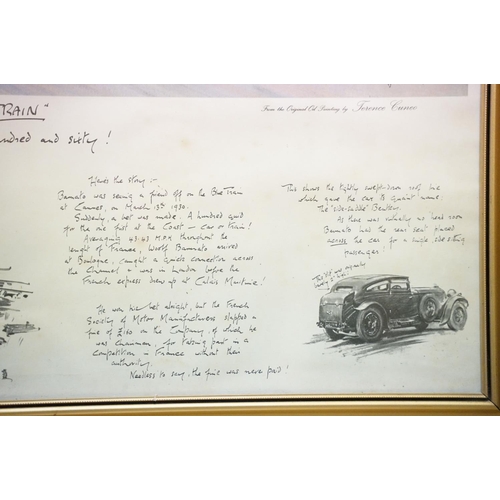 TRAIN"
From the Original Oil Painting by Terence Cuneo
hundred and sixty!
Here's the story :-
Barnato was seeing a friend off on the Blue Train
at Cannes, on March 13th 1930.
Suddenly, a bet was made. A hundred quid
for the one first at the Coast - car or train!
Averaging 43.43 M.P.H throughout the
lenght of France, Woolf Barnato arrived
at Boulogne, caught a quick connection across
the Channel & was in London before the
French express drew up at Calais Maritime!
He won his bet alright, but the French
Society of Motor Manufacturers slapped a
fine of £160 on the Company, of which he
was chairman, for taking part in a
competition in France without their
authority.
Needless to say, the fine was never paid!
This shows the tightly swept-down roof, line
which gave the car its quaint name:
The 'side-saddle' Bentley.
As there was virtually no head room
Barnato had the rear seat placed
across the car for a single side sitting
passenger!